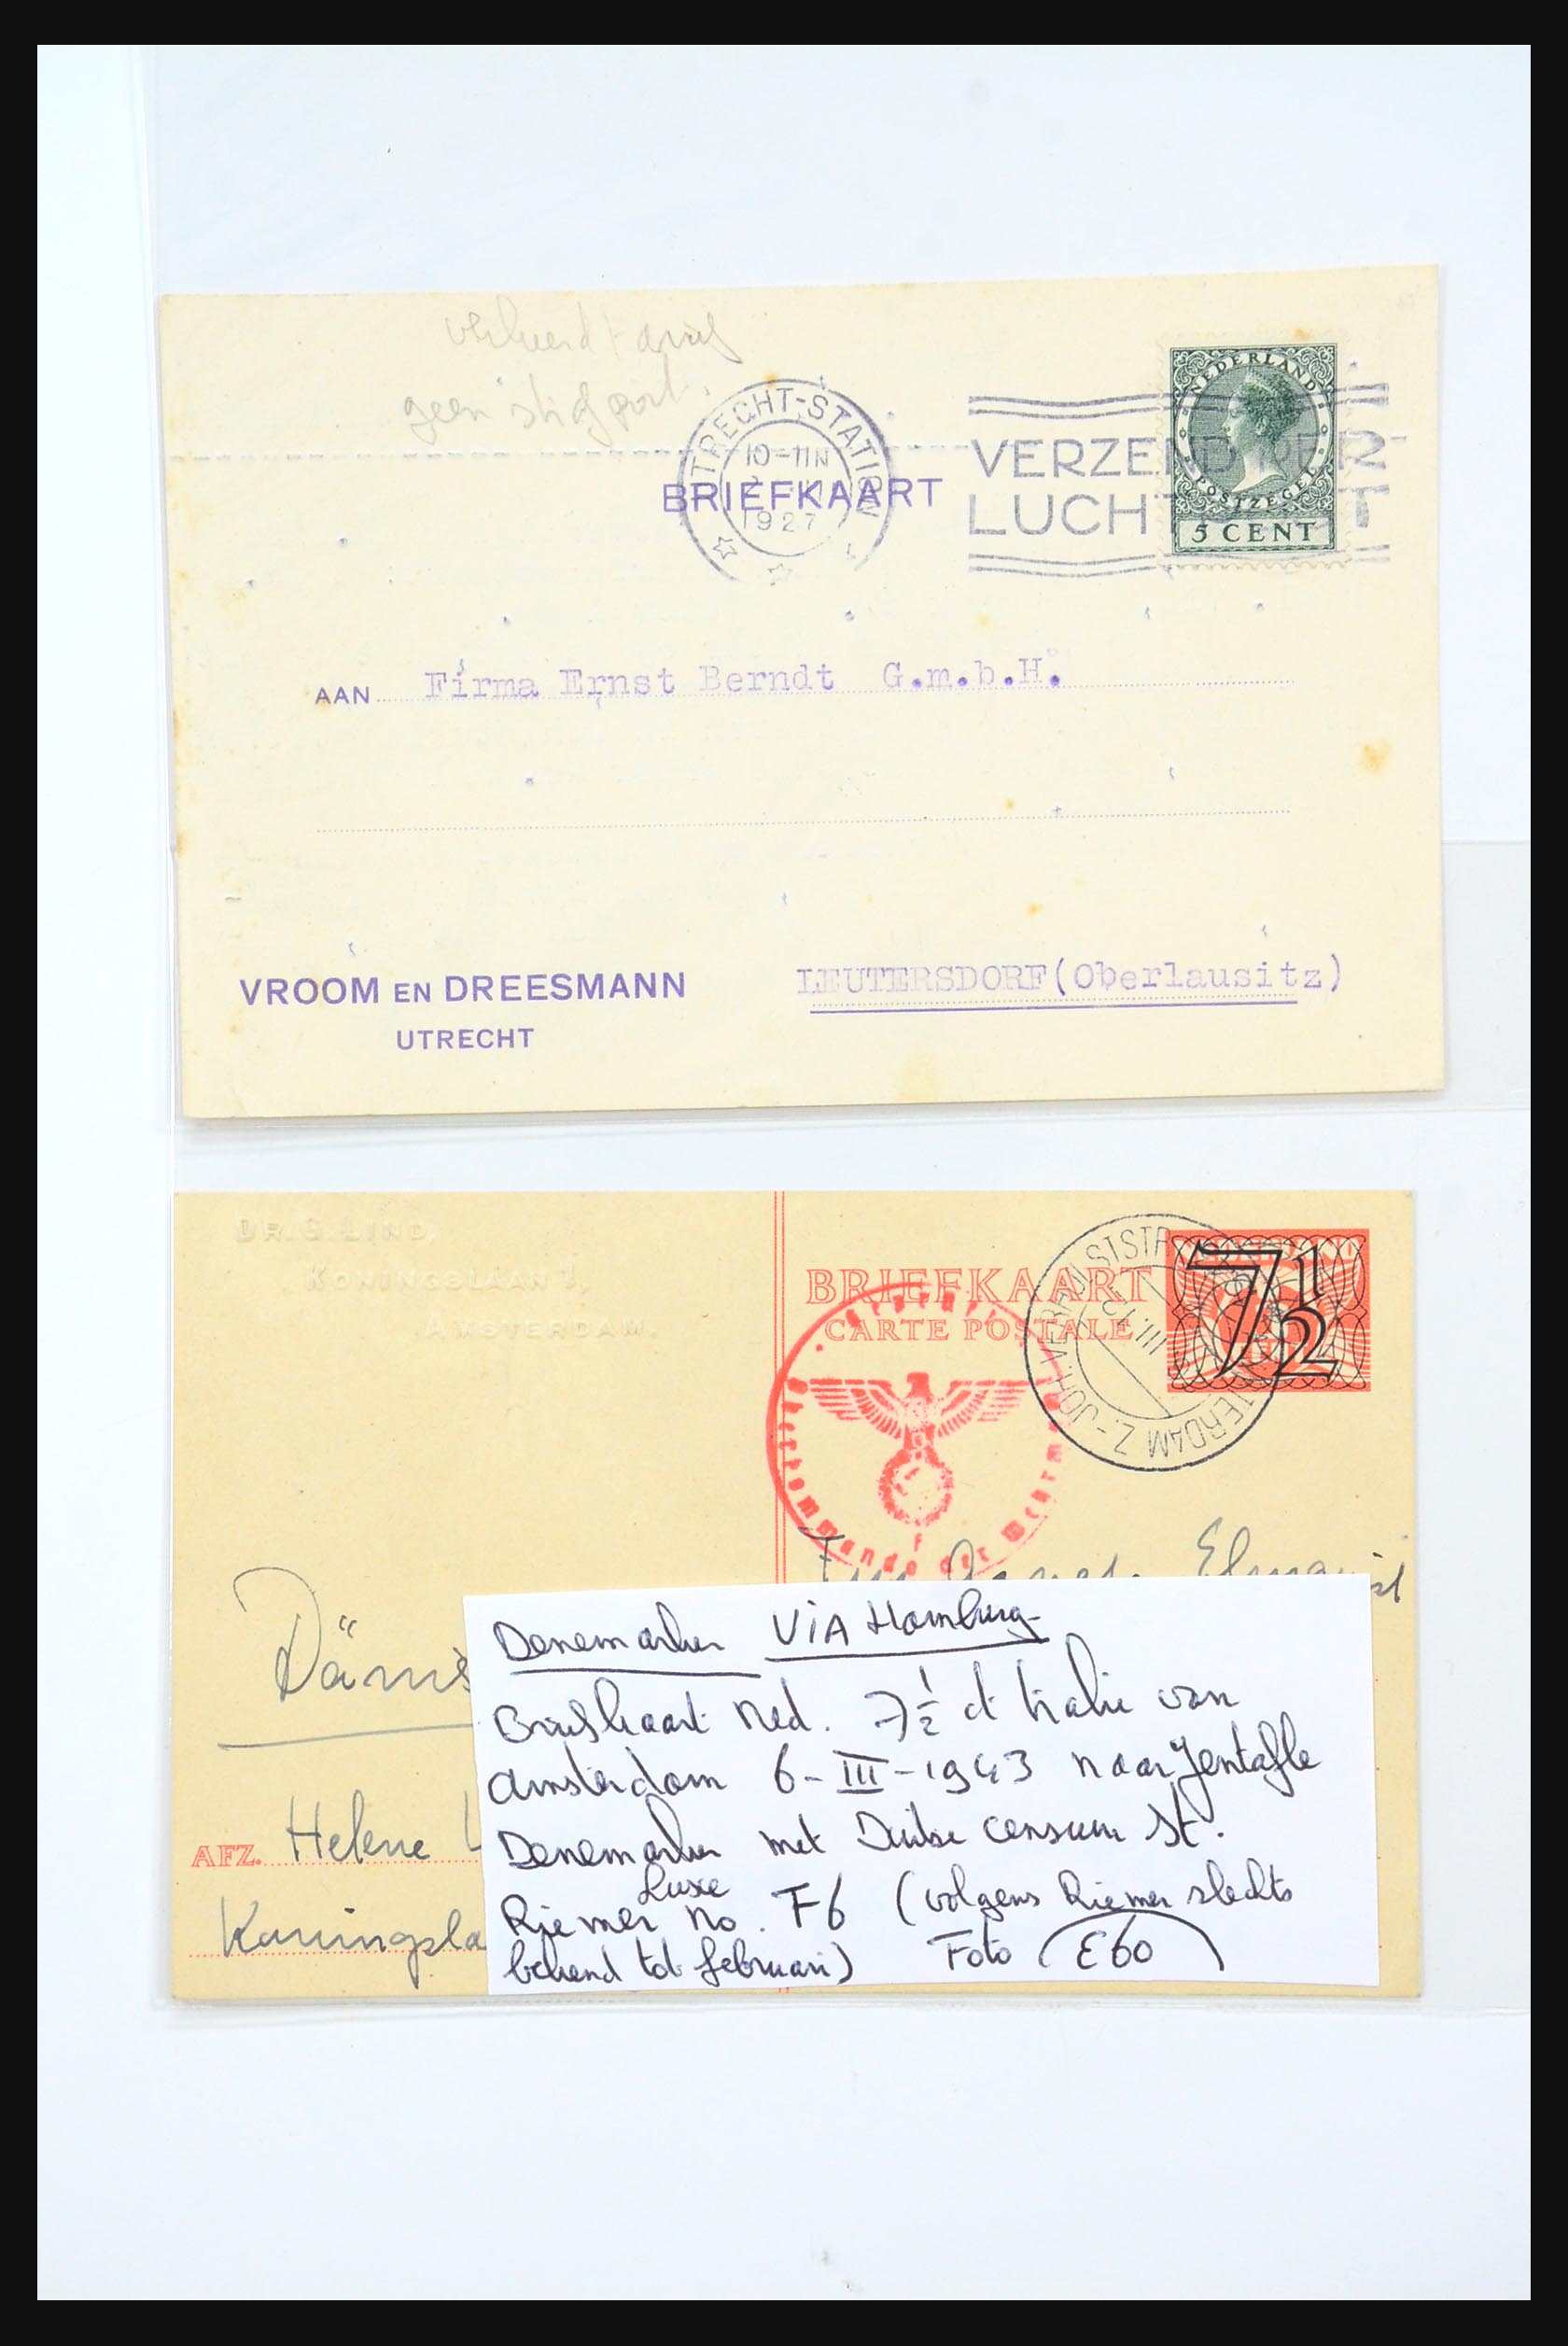 verkeerd tarief
geen strafport.
UTRECHT-STATION
10-11N
1927
VERZEND PER
LUCHTPOST
NEDERLAND
POSTZEGEL
5 CENT
BRIEFKAART
AAN Firma Ernst Berndt G.m.b.H.
VROOM EN DREESMANN
UTRECHT
LEUTERSDORF(Oberlausitz)
DR. G. LIND,
KONINGSLAAN 1,
AMSTERDAM.
BRIEFKAART
CARTE POSTALE
7½
AMSTERDAM Z.-JOH. VERHULSTSTR
Oberkommando der Wehrmacht
f
Elmquist
Däne
AFZ. Helene L
Koningsla
Denemarken VIA Hamburg
Briefkaart Ned. 7½ ct tralie van
Amsterdam 6-III-1943 naar Jentofte
Denemarken met Duitse censuur st.
Luxe
Riemer no. F6 (volgens Riemer slechts
bekend tot februari) Foto E60